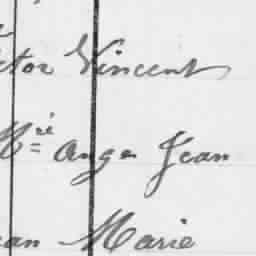 ctor Vincent
Mré Ange Jean
ean Marie